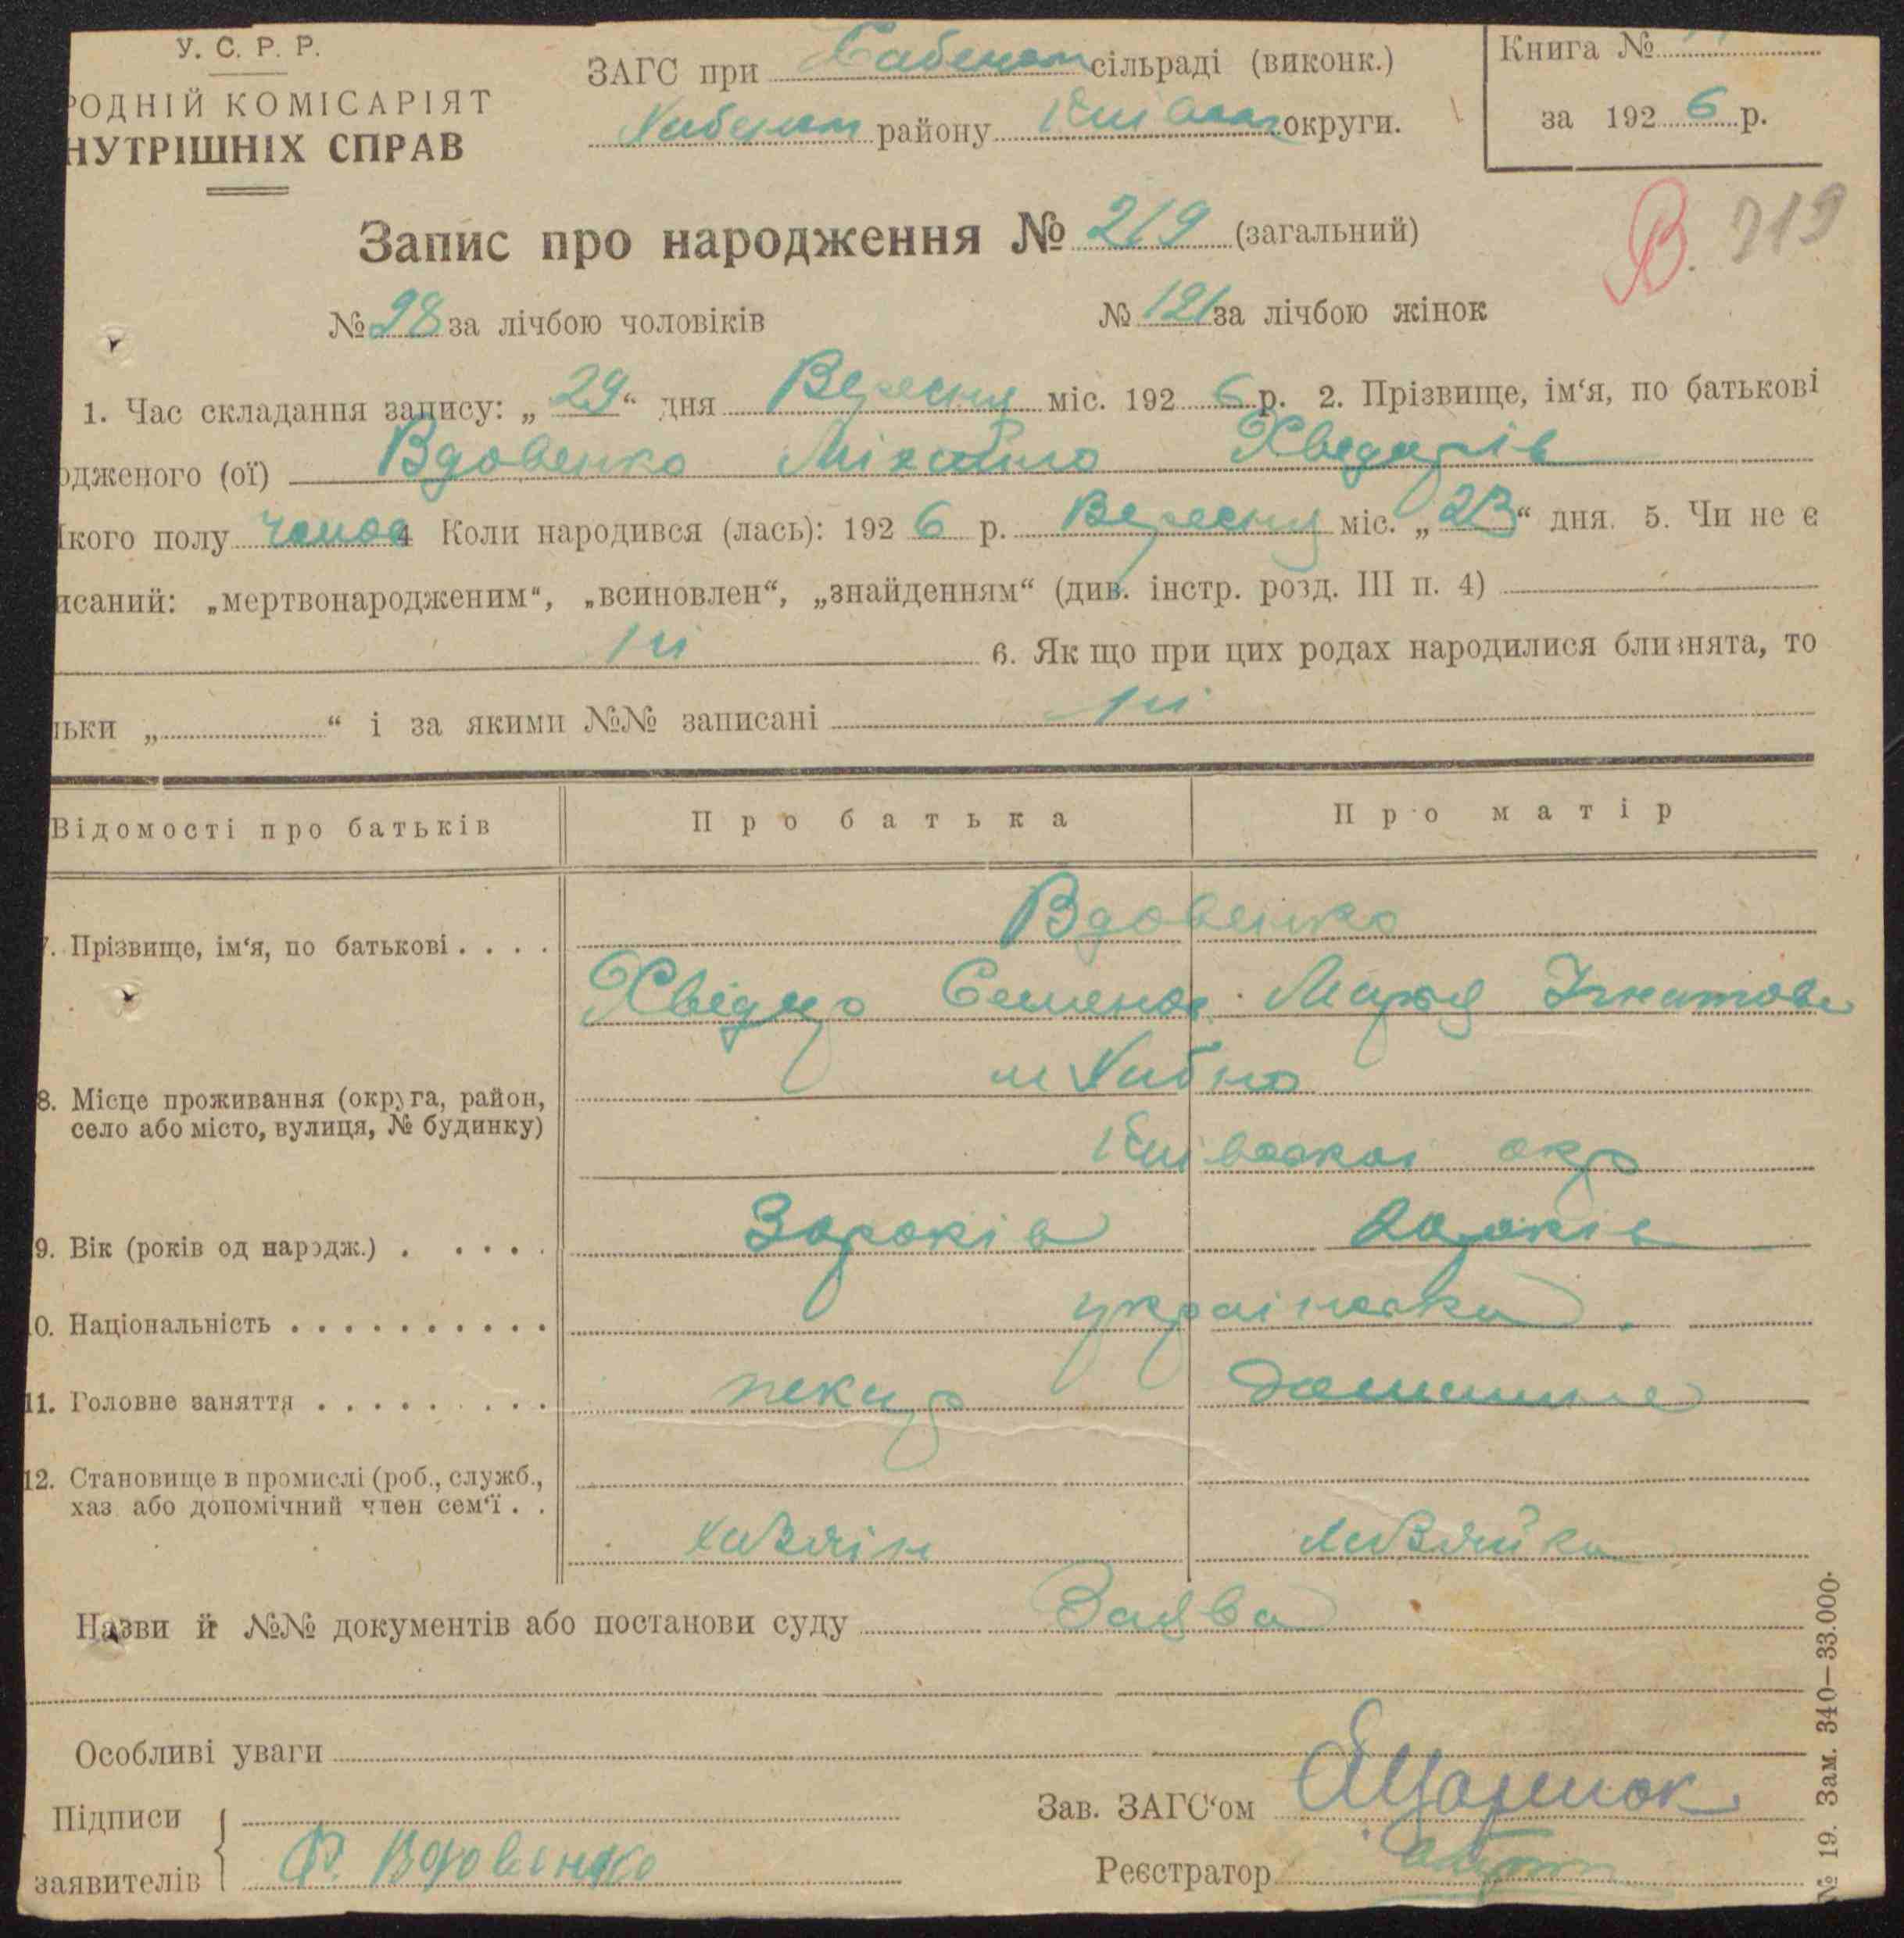 У. С. Р. Р.
РОДНІЙ КОМІСАРІЯТ
НУТРІШНІХ СПРАВ
ЗАГС при сільраді (виконк.)
району округи.
Книга №
за 192 6 р.
Запис про народження № 219 (загальний)
В. 219
№ 98 за лічбою чоловіків № 121 за лічбою жінок
1. Час складання запису: „ 29 “ дня Вересня міс. 192 6 р. 2. Прізвище, ім‘я, по батькові
одженого (ої) Вдовенко Міхайло Хведорів
Якого полу чолов 4 Коли народився (лась): 192 6 р. Вересня міс. „ 23 “ дня. 5. Чи не є
исаний: „мертвонародженим“, „всиновлен“, „знайденням“ (див. інстр. розд. III п. 4)
ні 6. Як що при цих родах народилися близнята, то
льки „ “ і за якими №№ записані ні
Відомості про батьків Про батька Про матір
7. Прізвище, ім‘я, по батькові . . . . Вдовенко
Хвідир Семенов Марія Ігнатова
8. Місце проживання (округа, район,
село або місто, вулиця, № будинку)
м Хабно
Київської окр
9. Вік (років од нарэдж.) . . . . . 30 років 20 років
10. Національність . . . . . . . . . . українська
11. Головне заняття . . . . . . . . . пекар домашнє
12. Становище в промислі (роб., служб.,
хаз. або допомічний член сем‘ї . .
хазяїн хазяйка
Назви й №№ документів або постанови суду Заява
Особливі уваги
Підписи
заявителів Ф. Вдовенко
Зав. ЗАГС‘ом
Реєстратор
№ 19. Зам. 340—33.000.